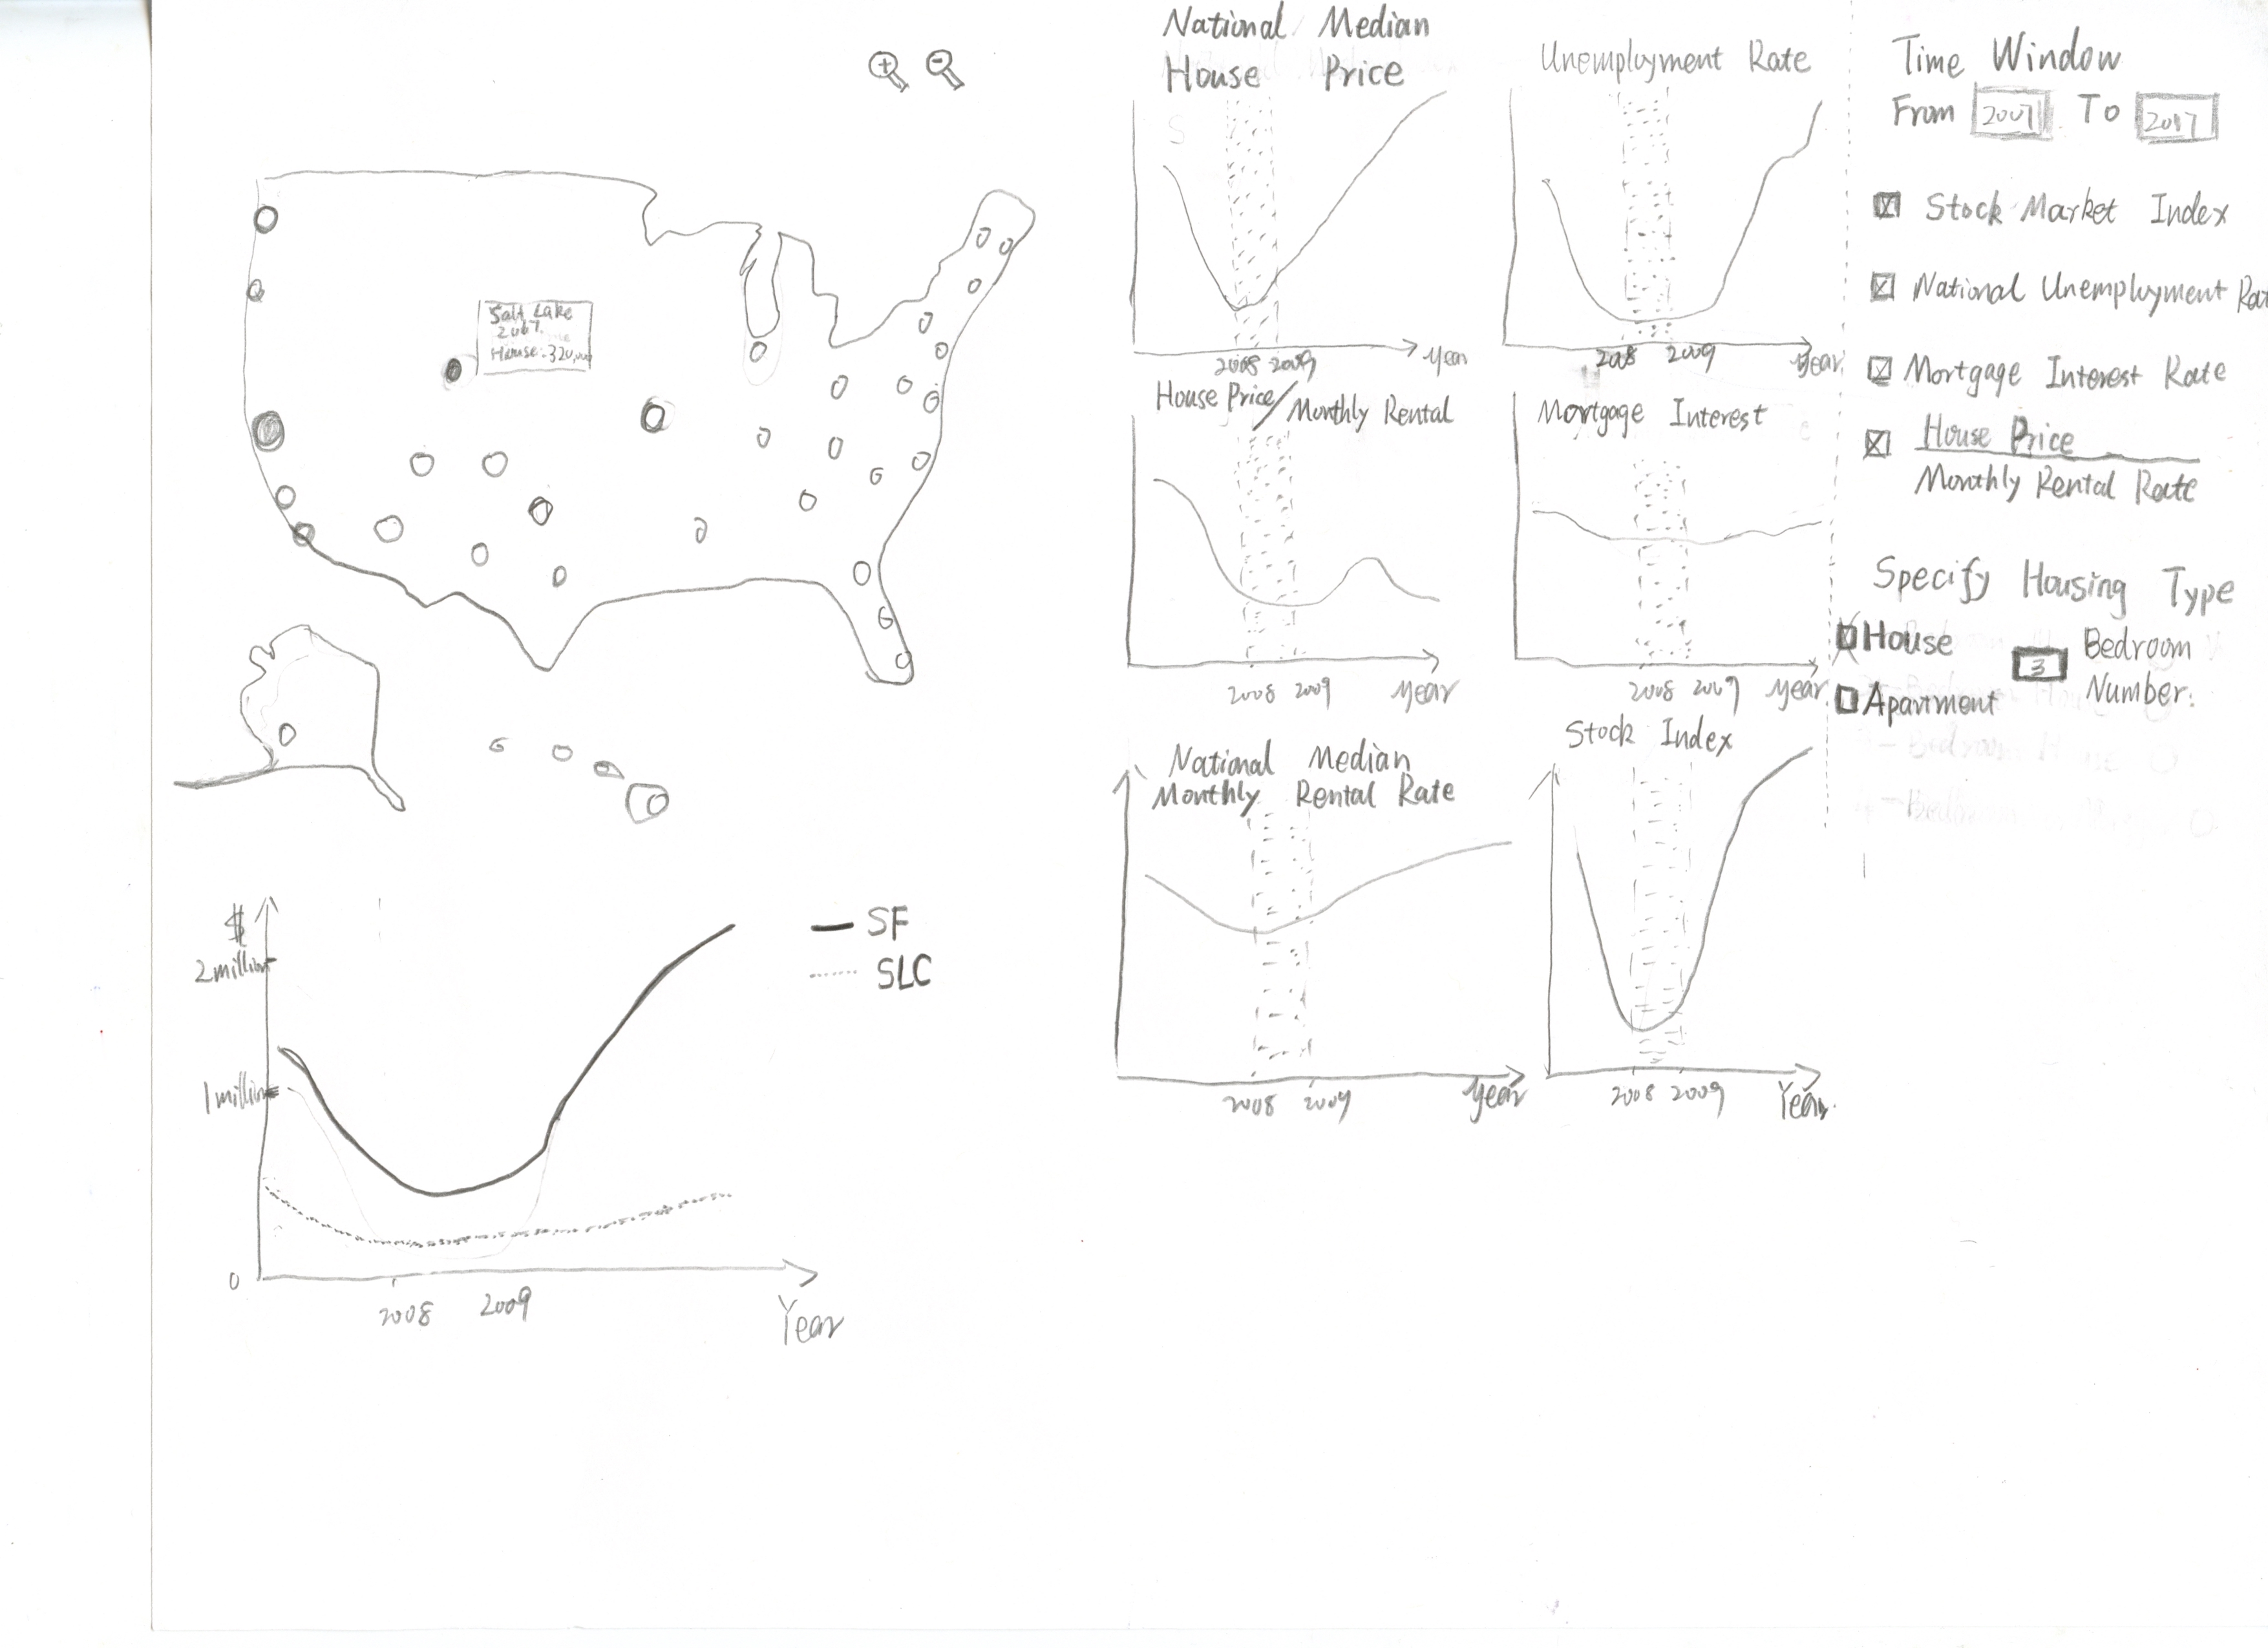 Salt Lake
2007.
House: 320,000
$
2 million
1 million
0
2008 2009
Year
SF
SLC
National Median
House Price
2008 2009
year
Unemployment Rate
2008 2009
year
House Price/Monthly Rental
2008 2009
year
Mortgage Interest
2008 2009
year
National Median
Monthly Rental Rate
2008 2009
year
Stock Index
2008 2009
Year
Time Window
From 2007 To 2017
Stock Market Index
National Unemployment Rat
Mortgage Interest Rate
House Price
Monthly Rental Rate
Specify Housing Type
House
Apartment
3
Bedroom
Number: